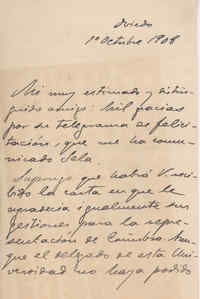 Oviedo
1º Octubre 1908
Mi muy estimado y distin-
guido amigo: Mil gracias
por su telegrama de felici-
tación, que me ha comu-
nicado Sela.
Supongo que habrá V. reci-
bido la carta en que le
agradecía igualmente sus
gestiones para la repre-
sentación de Coimbra. Aun-
que el delegado de esta Uni-
versidad no haya podido